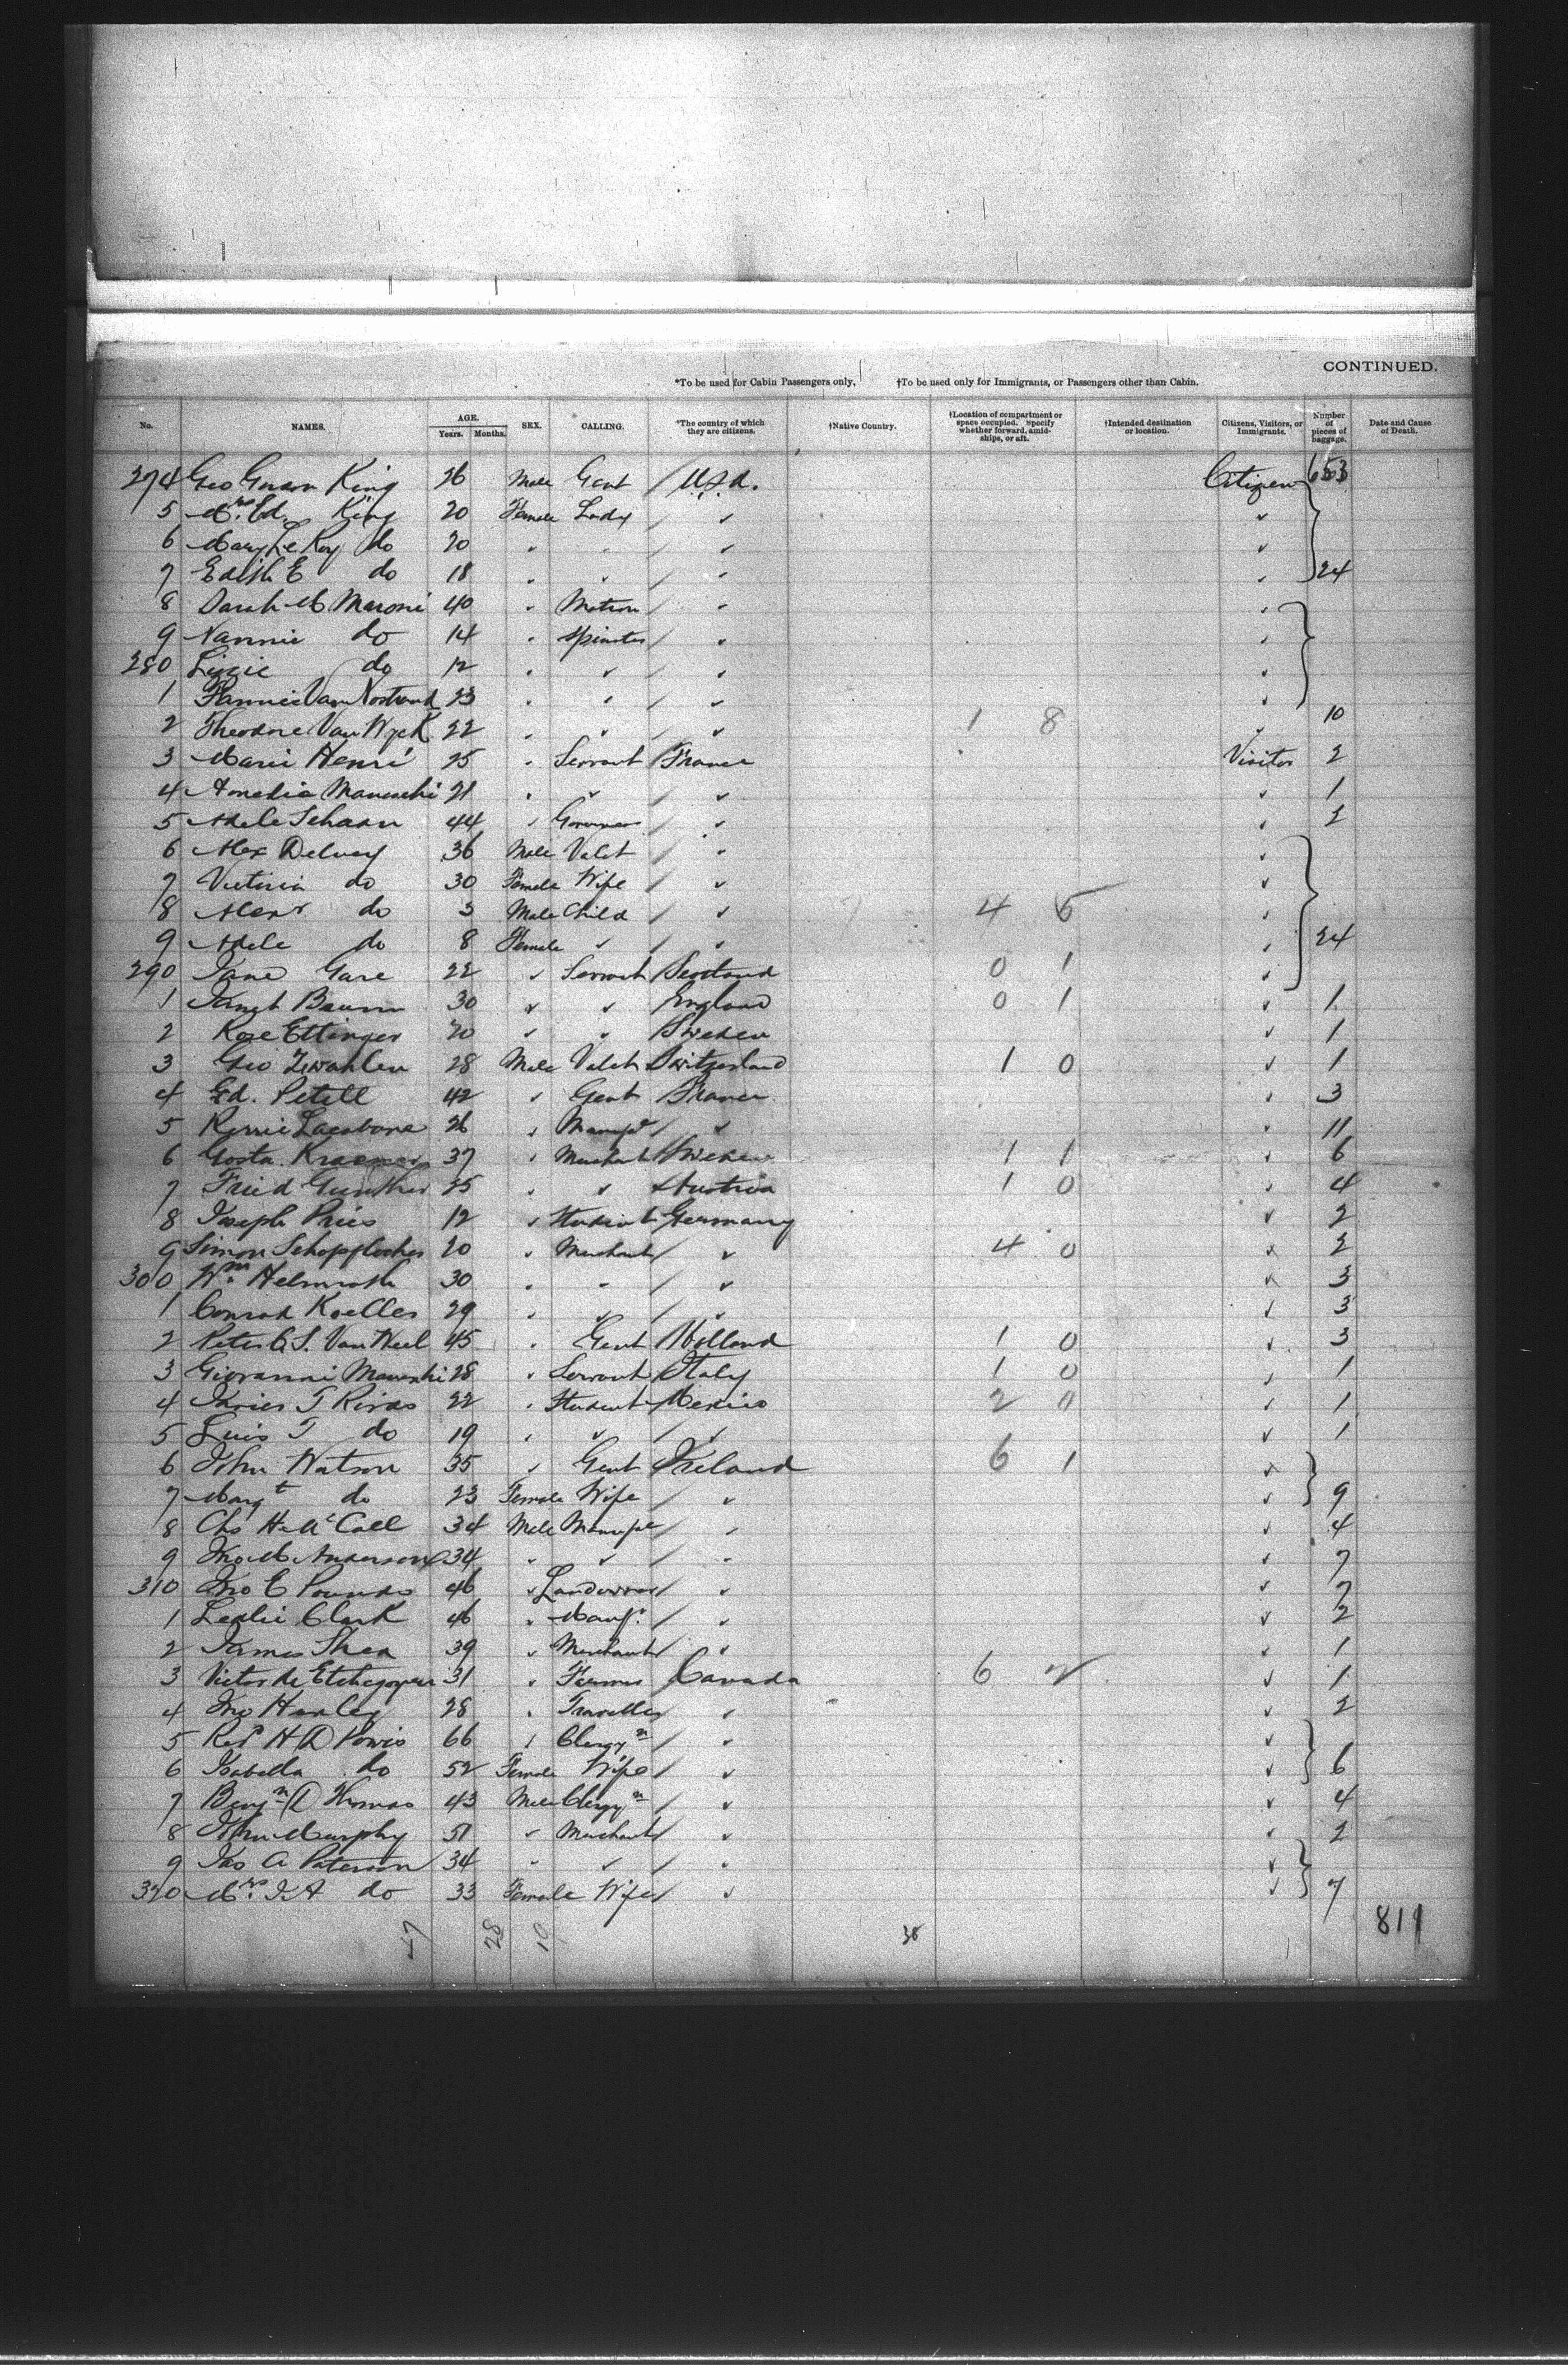 CONTINUED.
*To be used for Cabin Passengers only, †To be used only for Immigrants, or Passengers other than Cabin.
No. NAMES. AGE. Years. Months. SEX. CALLING. *The country of which they are citizens. †Native Country. †Location of compartment or space occupied. Specify whether forward, amidships, or aft. †Intended destination or location. Citizens, Visitors, or Immigrants. Number of pieces of baggage. Date and Cause of Death.
274 Geo King 26 Male Gent / U.S.A. Citizen 653
5 Mrs. Ed. King 20 Female Lady ✓ ✓
6 Mary Le Roy do 20 ✓ / ✓ ✓
7 Edith E do 18 ✓ ✓ / ✓ ✓ 24
8 Sarah M Maroni 40 ✓ Matron / ✓ ✓
9 Nannie do 14 ✓ Spinster / ✓ ✓
280 Lizzie do 12 ✓ ✓ / ✓ ✓
1 Fannie Van Nostrand 23 ✓ ✓ / ✓ ✓
2 Theodore Van Wyck 22 ✓ ✓ / ✓ 1 8 ✓ 10
3 Marie Henri 25 ✓ Servant / France Visitor 2
4 Amelia Maneschi 21 ✓ ✓ / ✓ ✓ 1
5 Adele Schaan 44 ✓ / ✓ ✓ 2
6 Alex Delvey 36 Male Valet / ✓ ✓
7 Victoria do 30 Female Wife / ✓ ✓
8 Alexr. do 3 Male Child / ✓ 4 5 ✓
9 Adele do 8 Female ✓ / ✓ ✓ 24
290 Jane Gare 22 ✓ Servant / Scotland 0 1 ✓
1 Janet 30 ✓ ✓ / England 0 1 ✓ 1
2 Rose Ettinger 20 ✓ ✓ / Sweden ✓ 1
3 Geo Zwahlen 28 Male Valet / Switzerland 1 0 ✓ 1
4 Ed. Petell 42 ✓ Gent / France ✓ 3
5 26 ✓ / ✓ ✓ 11
6 Gosta Kraemer 37 ✓ Merchant / Sweden 1 1 ✓ 6
7 Fried Gunther 25 ✓ ✓ / Austria 1 0 ✓ 4
8 Joseph Pries 12 ✓ Student / Germany ✓ 2
9 Simon Schopflocher 20 ✓ Merchant / ✓ 4 0 ✓ 2
300 Wm. Helmroth 30 ✓ ✓ / ✓ ✓ 3
1 Conrad Koelles 29 ✓ ✓ / ✓ ✓ 3
2 Peter C. S. Van Weel 45 ✓ Gent / Holland 1 0 ✓ 3
3 Giovanni Maneschi 28 ✓ Servant / Italy 1 0 ✓ 1
4 Javier T Rivas 22 ✓ Student / Mexico 2 0 ✓ 1
5 Luis T do 19 ✓ ✓ / ✓ ✓ 1
6 John Watson 35 ✓ Gent / Ireland 6 1 ✓
7 Margt do 23 Female Wife / ✓ ✓ 9
8 Chs H McCall 34 Male / ✓ ✓ 4
9 Jno M Anderson 34 ✓ ✓ / ✓ ✓ 7
310 Jno E Pounds 46 ✓ Landowner / ✓ ✓ 7
1 Leslie Clark 46 ✓ Manfr. / ✓ ✓ 2
2 James Shea 39 ✓ Merchant / ✓ ✓ 1
3 Victor de 31 ✓ Farmer / Canada 6 2 ✓ 1
4 Jno Hanley 28 ✓ Traveller / ✓ ✓ 2
5 Revd H D Powis 66 ✓ Clergyn / ✓ ✓
6 Isabella do 52 Female Wife / ✓ ✓ 6
7 Benjn D Thomas 43 Male Clergyn / ✓ ✓ 4
8 John Murphy 51 ✓ Merchant / ✓ ✓ 2
9 Jas A Paterson 34 ✓ ✓ / ✓ ✓
320 Mrs. J. A do 33 Female Wife / ✓ ✓ 7
47 28 19 38 811